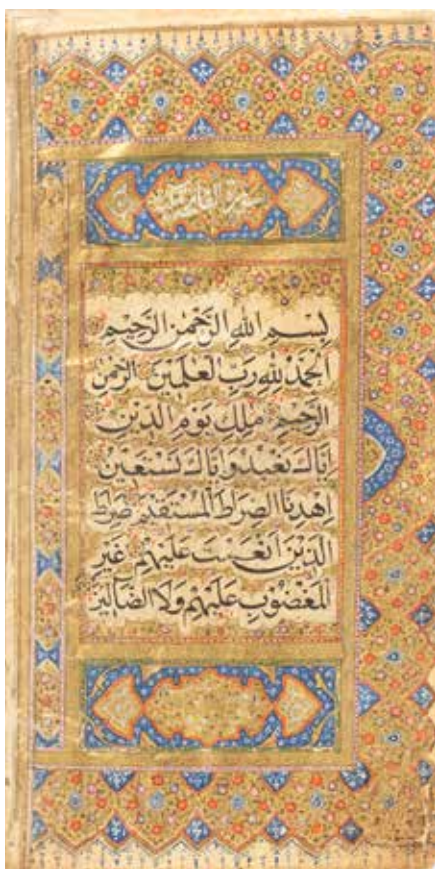 سورة الفاتحة
بِسْمِ اللهِ الرَّحْمٰنِ الرَّحِيمِ
اَلْحَمْدُ لِلّٰهِ رَبِّ الْعٰلَمِينَ الرَّحْمٰنِ
الرَّحِيمِ مٰلِكِ يَوْمِ الدِّينِ
اِيَّاكَ نَعْبُدُ وَاِيَّاكَ نَسْتَعِينُ
اِهْدِنَا الصِّرَاطَ الْمُسْتَقِيمَ صِرَاطَ
الَّذِينَ اَنْعَمْتَ عَلَيْهِمْ غَيْرِ
الْمَغْضُوبِ عَلَيْهِمْ وَلَا الضَّآلِّينَ